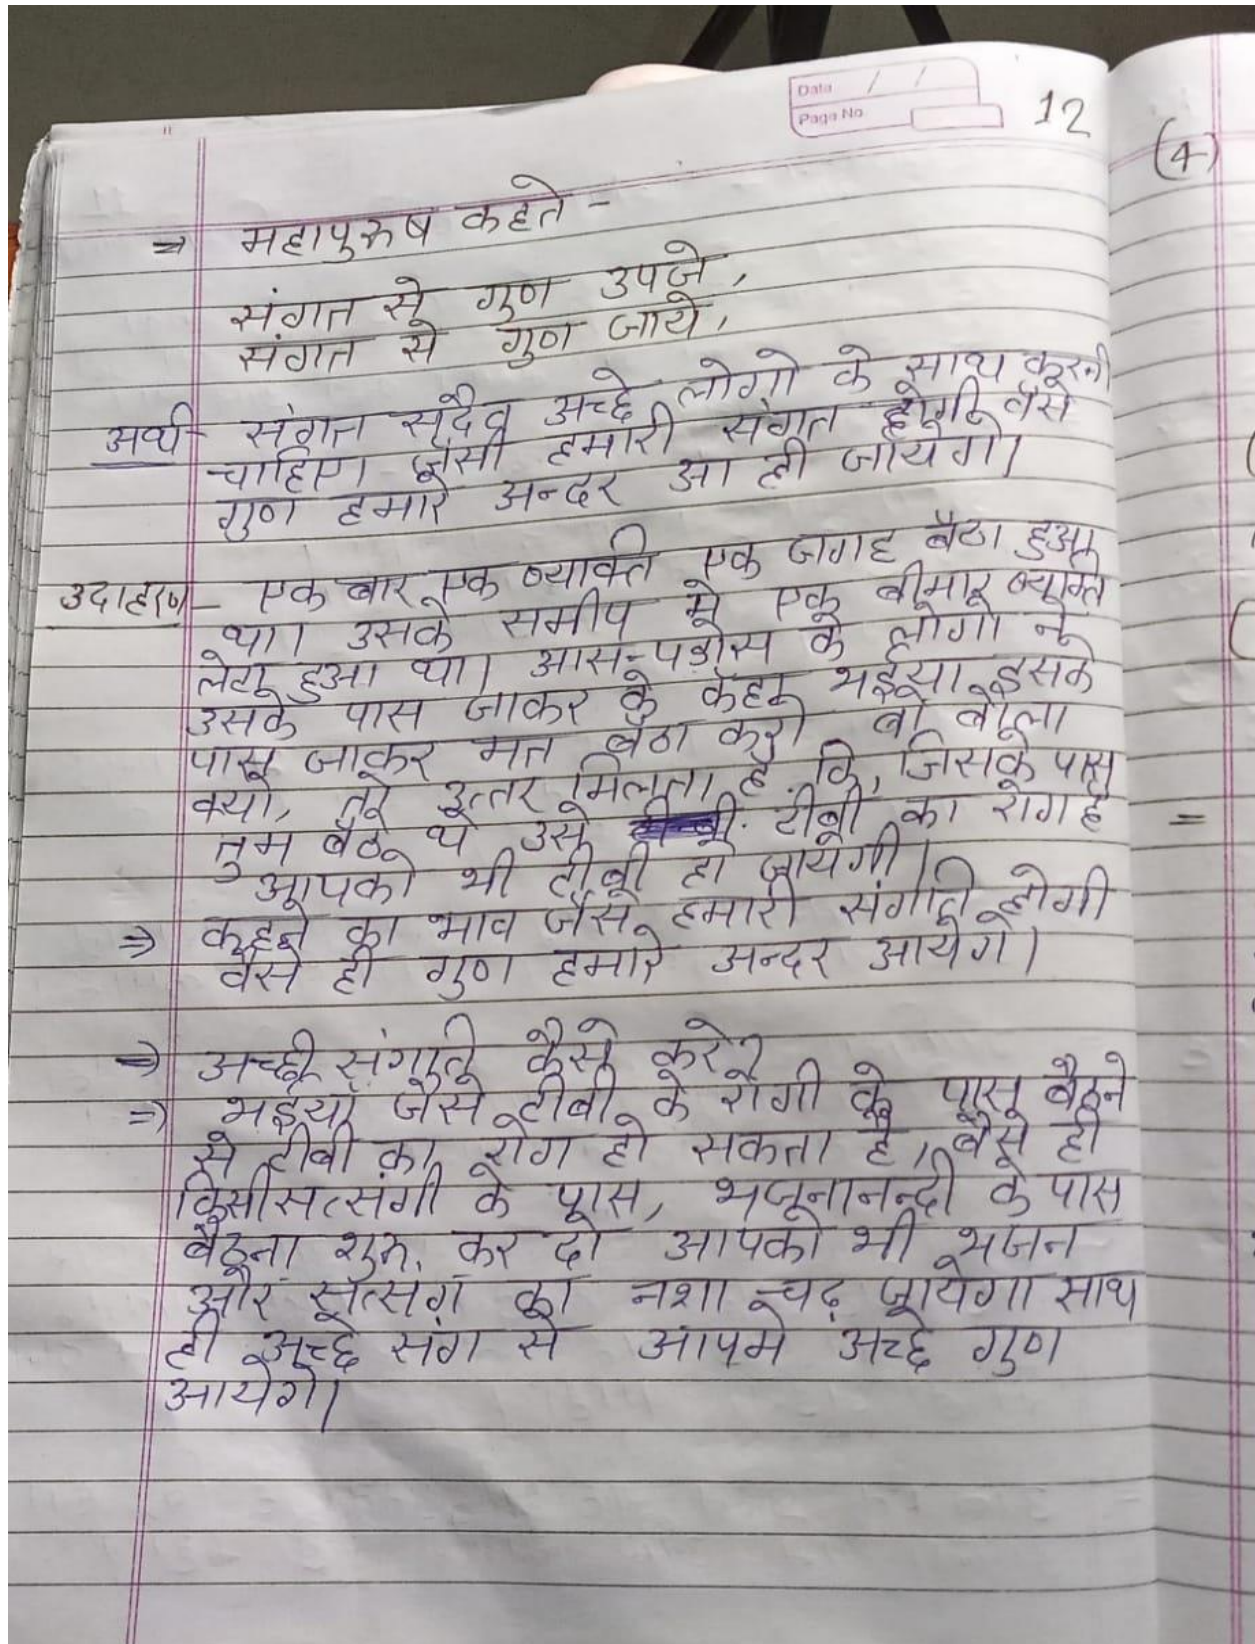 Data / /
Page No
12
(4)
⇒ महापुरुष कहते -
संगत से गुण उपजे,
संगत से गुण जाये,
अर्थ - संगत सदैव अच्छे लोगो के साथ करनी
चाहिए। जैसी हमारी संगत होगी वैसे
गुण हमारे अन्दर आ ही जायेगे।
उदाहरण - एक बार एक व्याक्ति एक जगह बैठा हुआ
था। उसके समीप मे एक बीमार व्यक्ति
लेटा हुआ था। आस-पडोस के लोगो ने
उसके पास जाकर के कहा भईया इसके
पास जाकर मत बैठा करो बो बोला
क्यो, तो उत्तर मिलता है कि, जिसके पास
तुम बैठे थे उसे टीबी का रोग है
आपको भी टीबी हो जायेगी।
⇒ कहने का भाव जैसे हमारी संगति होगी
वैसे ही गुण हमारे अन्दर आयेगे।
⇒ अच्छी संगति कैसे करे?
⇒ भईया जैसे टीबी के रोगी के पास बैठने
से टीबी का रोग हो सकता है, वैसे ही
किसी सत्संगी के पास, भजनानन्दी के पास
बैठना शुरु कर दो आपको भी भजन
और सत्संग का नशा चढ़ जायेगा साथ
ही अच्छे संग से आपमे अच्छे गुण
आयेगे।
=